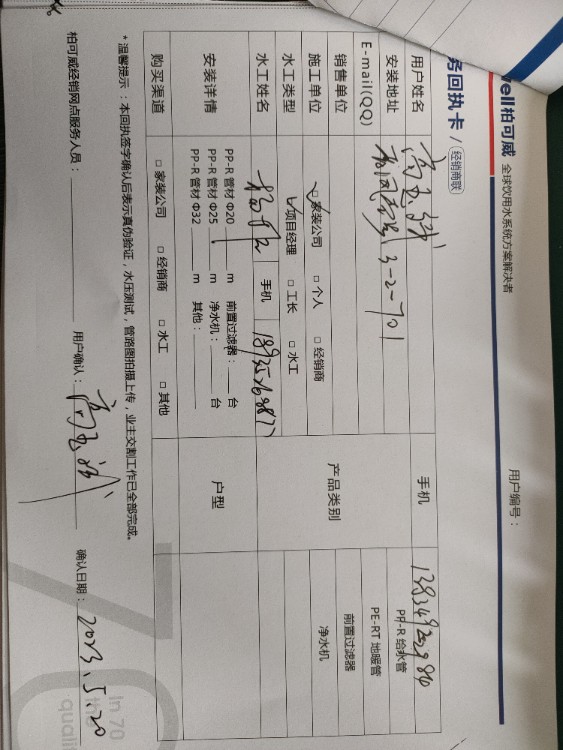 well柏可威 全球饮用水系统方案解决者
用户编号：
务回执卡/ 经销商联
用户姓名 手机
安装地址 3-2-701 PP-R 给水管
E-mail(QQ) PE-RT 地暖管
销售单位 产品类别 前置过滤器
施工单位 □家装公司 □ 个人 □ 经销商 净水机
水工类型 □项目经理 □ 工长 □ 水工
水工姓名 手机
安装详情 户型
PP-R 管材 Φ20 m 前置过滤器： 台
PP-R 管材 Φ25 m 净水机： 台
PP-R 管材 Φ32 m 其他：
购买渠道 □ 家装公司 □ 经销商 □ 水工 □ 其他
*温馨提示：本回执签字确认后表示真伪验证，水压测试，管路图拍摄上传，业主交割工作已全部完成。
柏可威经销网点服务人员： 用户确认： 确认日期： 2023.5.20
In 70
the
quali